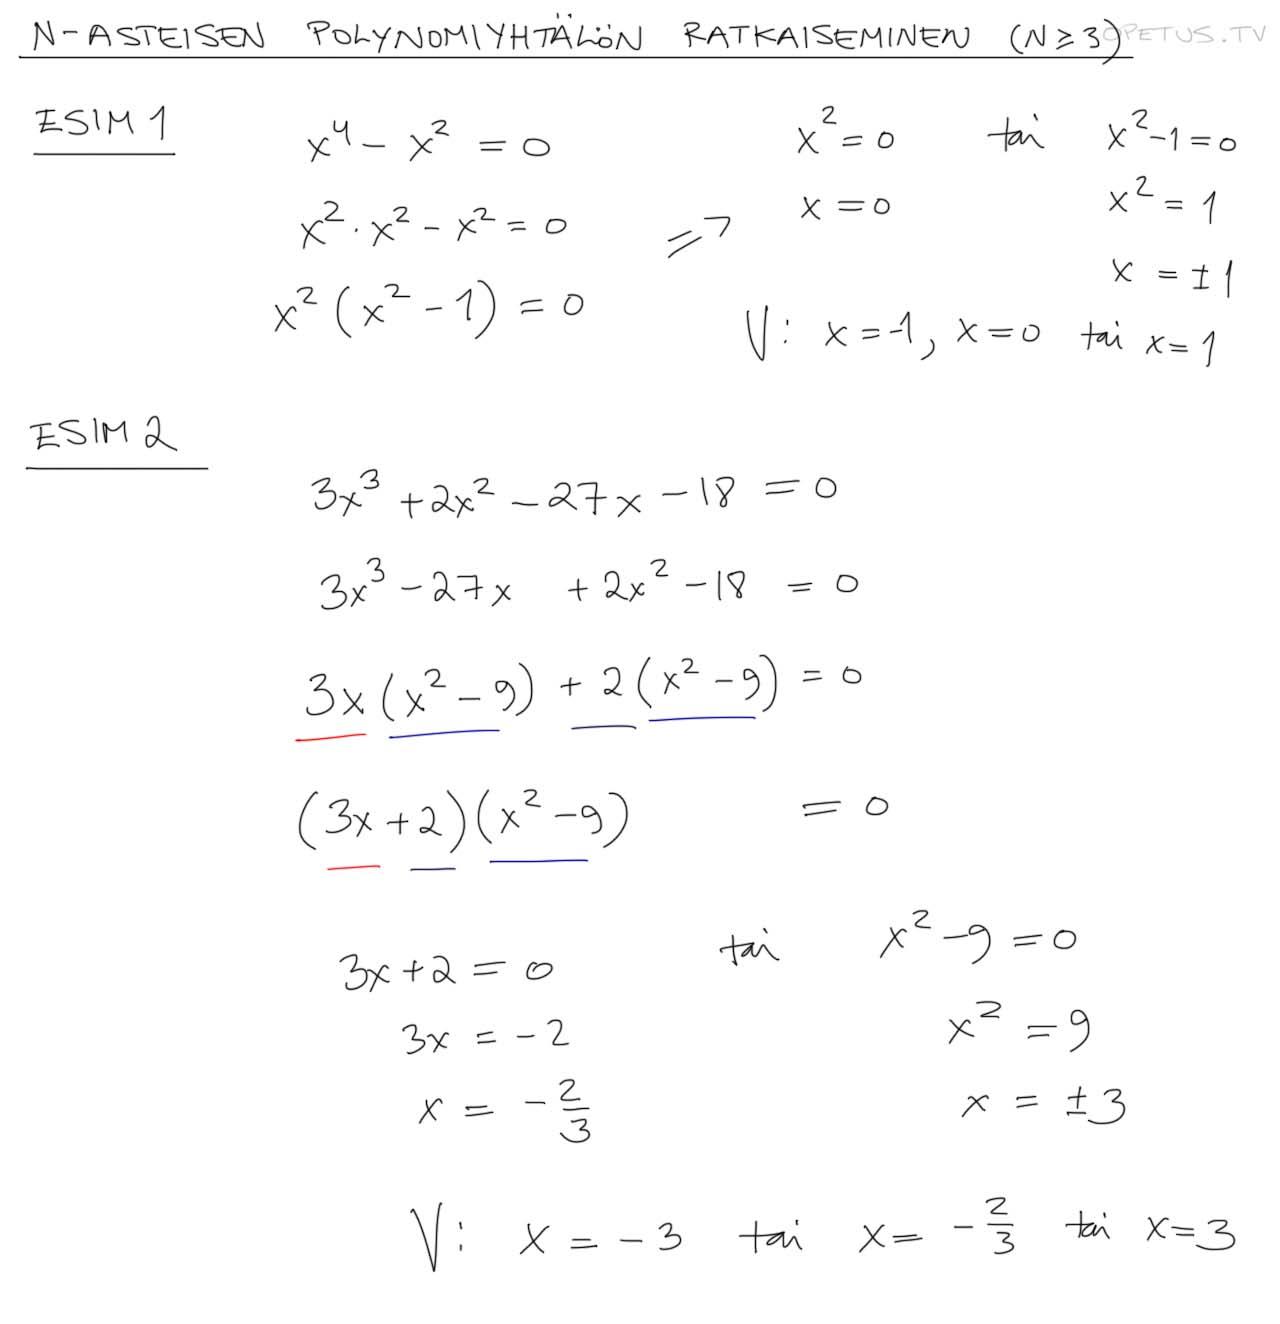 N-ASTEISEN POLYNOMIYHTÄLÖN RATKAISEMINEN (N ≥ 3)
OPETUS.TV
ESIM 1
x⁴ - x² = 0
x² · x² - x² = 0
x² (x² - 1) = 0
=>
x² = 0 tai x² - 1 = 0
x = 0 x² = 1
x = ±1
V: x = -1, x = 0 tai x = 1
ESIM 2
3x³ + 2x² - 27x - 18 = 0
3x³ - 27x + 2x² - 18 = 0
3x (x² - 9) + 2 (x² - 9) = 0
(3x + 2)(x² - 9) = 0
3x + 2 = 0 tai x² - 9 = 0
3x = -2 x² = 9
x = -2/3 x = ±3
V: x = -3 tai x = -2/3 tai x = 3